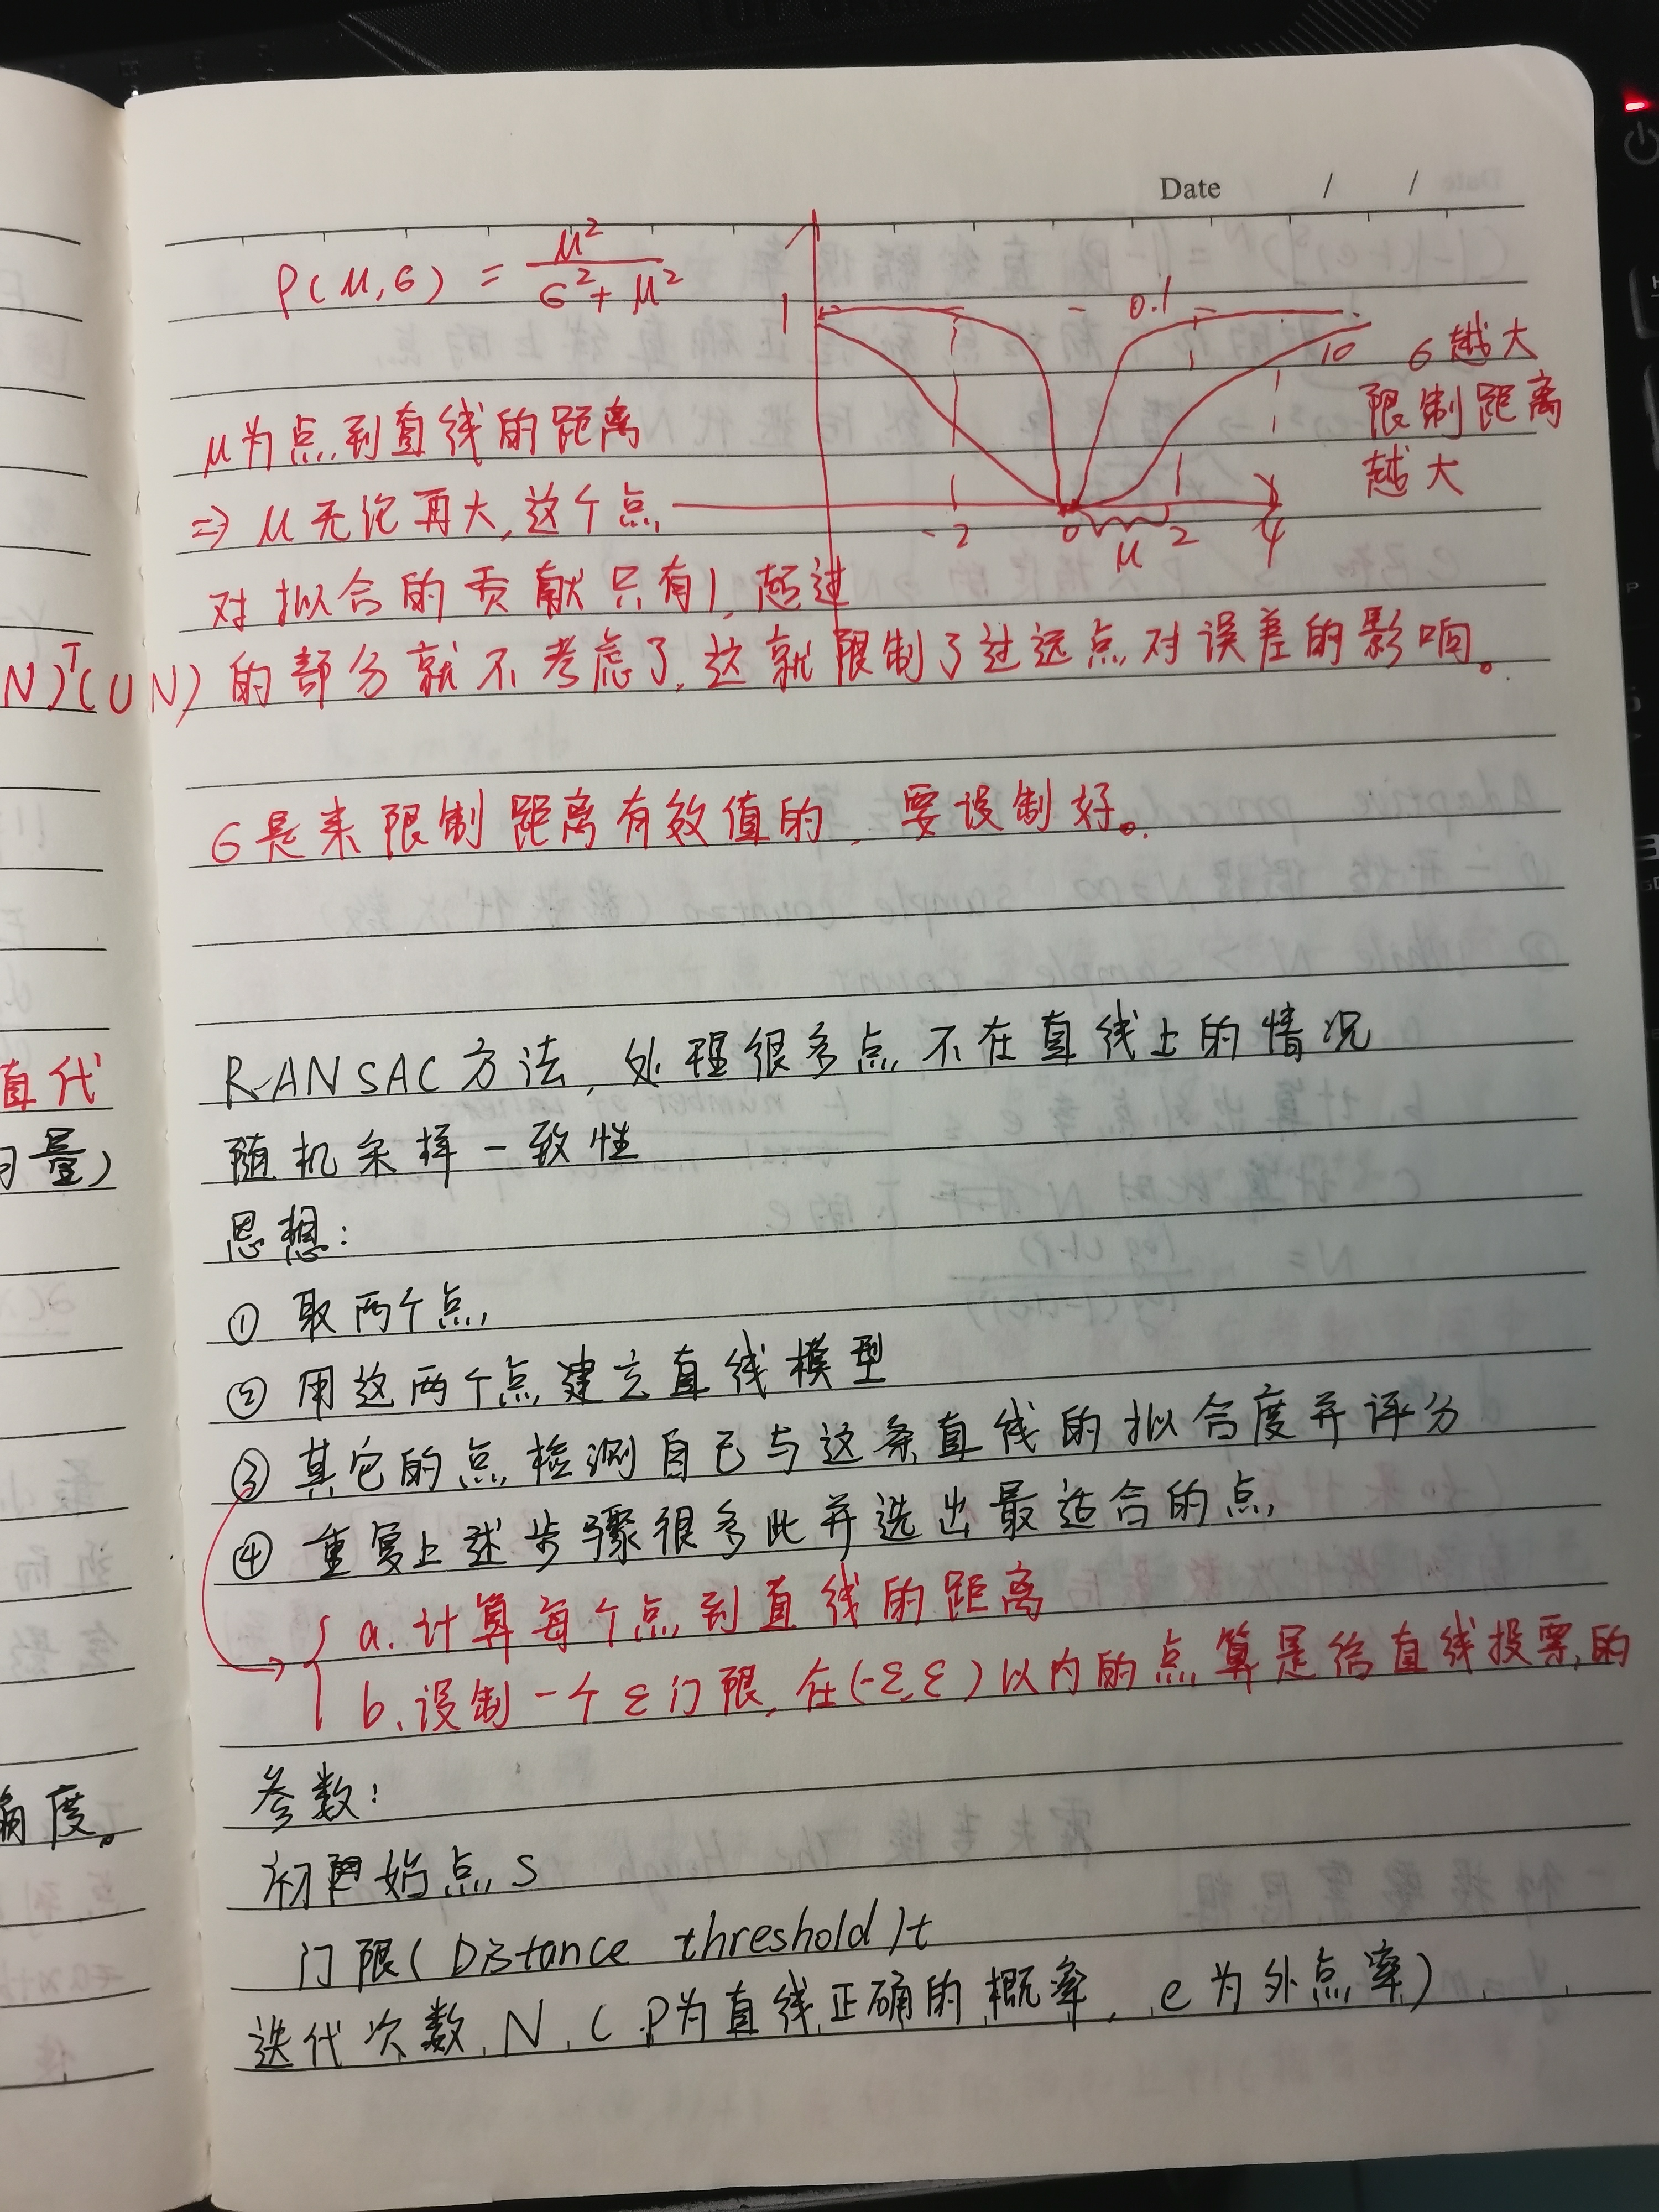 Date / /
ρ(μ,σ) = μ²/(σ²+μ²)
1
0.1
10
σ越大
限制距离
越大
-2 0 2 4
μ
μ为点到直线的距离
⇒ μ无论再大,这个点
对拟合的贡献只有1,超过
N)ᵀ(UN)
的部分就不考虑了,这就限制了过远点对误差的影响。
σ是来限制距离有效值的,要设制好。
RANSAC方法,处理很多点不在直线上的情况
直代
随机采样一致性
量)
思想:
① 取两个点
② 用这两个点建立直线模型
③ 其它的点检测自己与这条直线的拟合度并评分
④ 重复上述步骤很多此并选出最适合的点
a.计算每个点到直线的距离
b.设制一个ε门限,在(-ε,ε)以内的点算是给直线投票的
参数:
角度。
初始点s
门限(Distance threshold)t
迭代次数N (P为直线正确的概率,e为外点率)